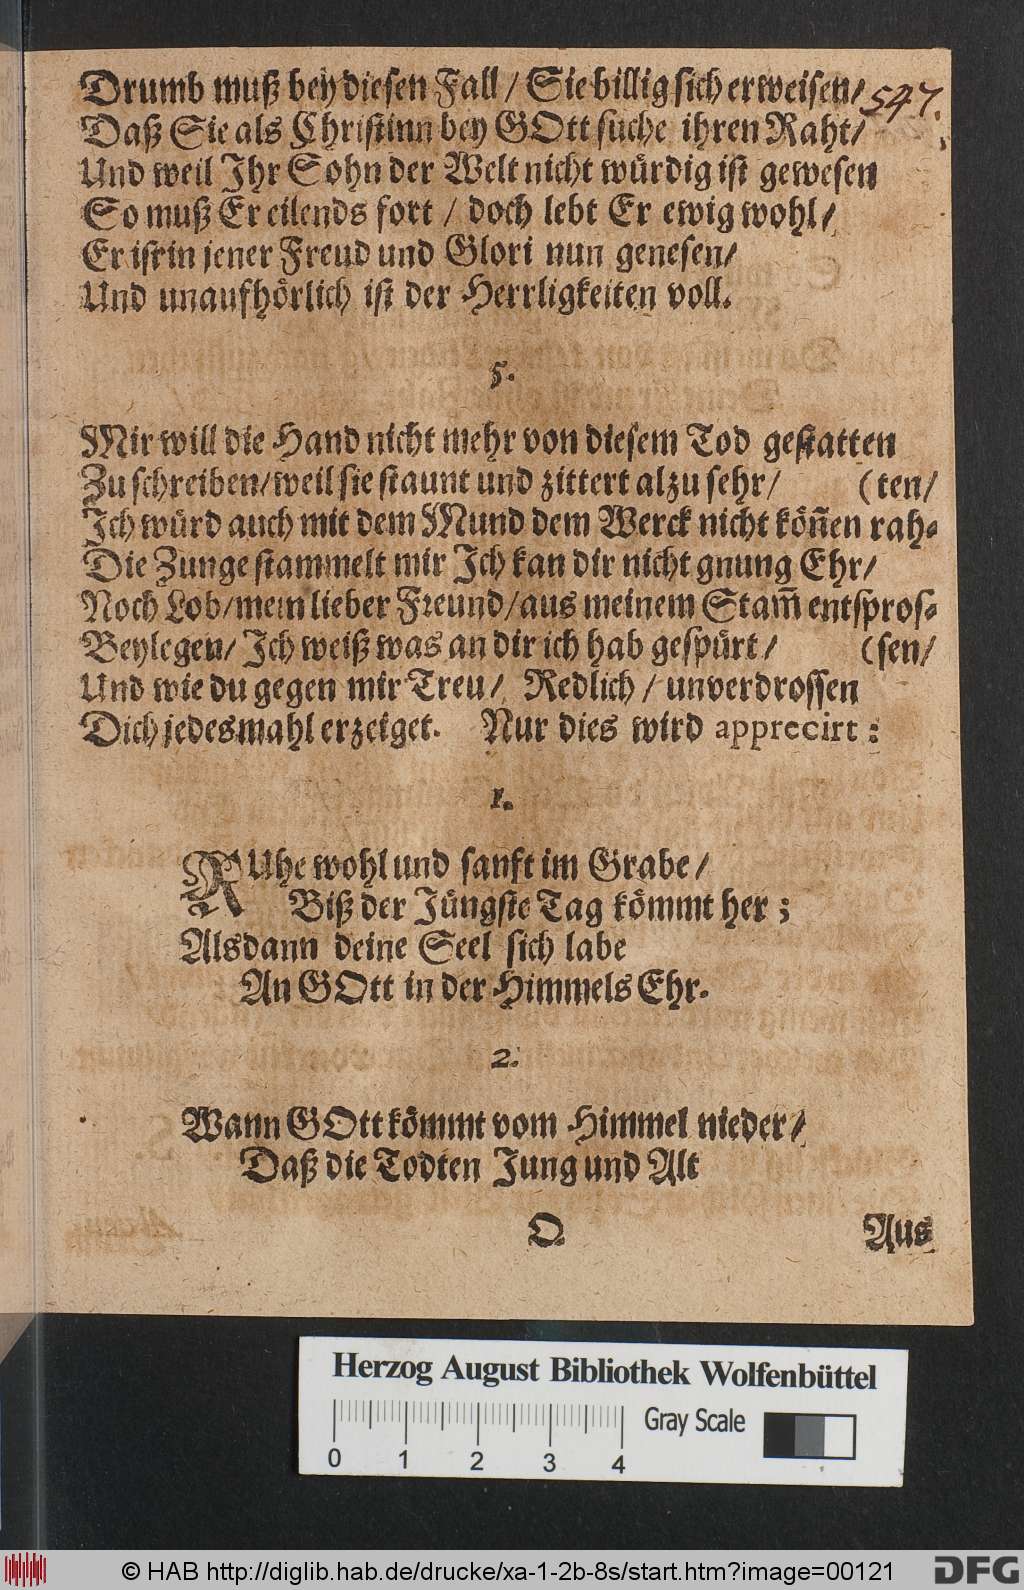 Drumb muß bey diesen Fall / Sie billig sich erweisen /
547.
Daß Sie als Christinn bey GOtt suche ihren Raht /
Und weil Ihr Sohn der Welt nicht würdig ist gewesen
So muß Er eilends fort / doch lebt Er ewig wohl /
Er ist in jener Freud und Glori nun genesen /
Und unaufhörlich ist der Herrligkeiten voll.
5.
Mir will die Hand nicht mehr von diesem Tod gestatten
Zu schreiben / weil sie staunt und zittert alzu sehr / (ten /
Ich würd auch mit dem Mund dem Werck nicht köñen rah-
Die Zunge stammelt mir Ich kan dir nicht gnung Ehr /
Noch Lob / mein lieber Freund / aus meinem Stam̃ entspros-
Beylegen / Ich weiß was an dir ich hab gespürt / (sen /
Und wie du gegen mir Treu / Redlich / unverdrossen
Dich jedesmahl erzeiget. Nur dies wird apprecirt :
1.
RUhe wohl und sanft im Grabe /
Biß der Jüngste Tag kömmt her ;
Alsdann deine Seel sich labe
An GOtt in der Himmels Ehr.
2.
Wann GOtt kömmt vom Himmel nieder /
Daß die Todten Jung und Alt
O.
Aus
Herzog August Bibliothek Wolfenbüttel
Gray Scale
0 1 2 3 4
© HAB http://diglib.hab.de/drucke/xa-1-2b-8s/start.htm?image=00121
DFG